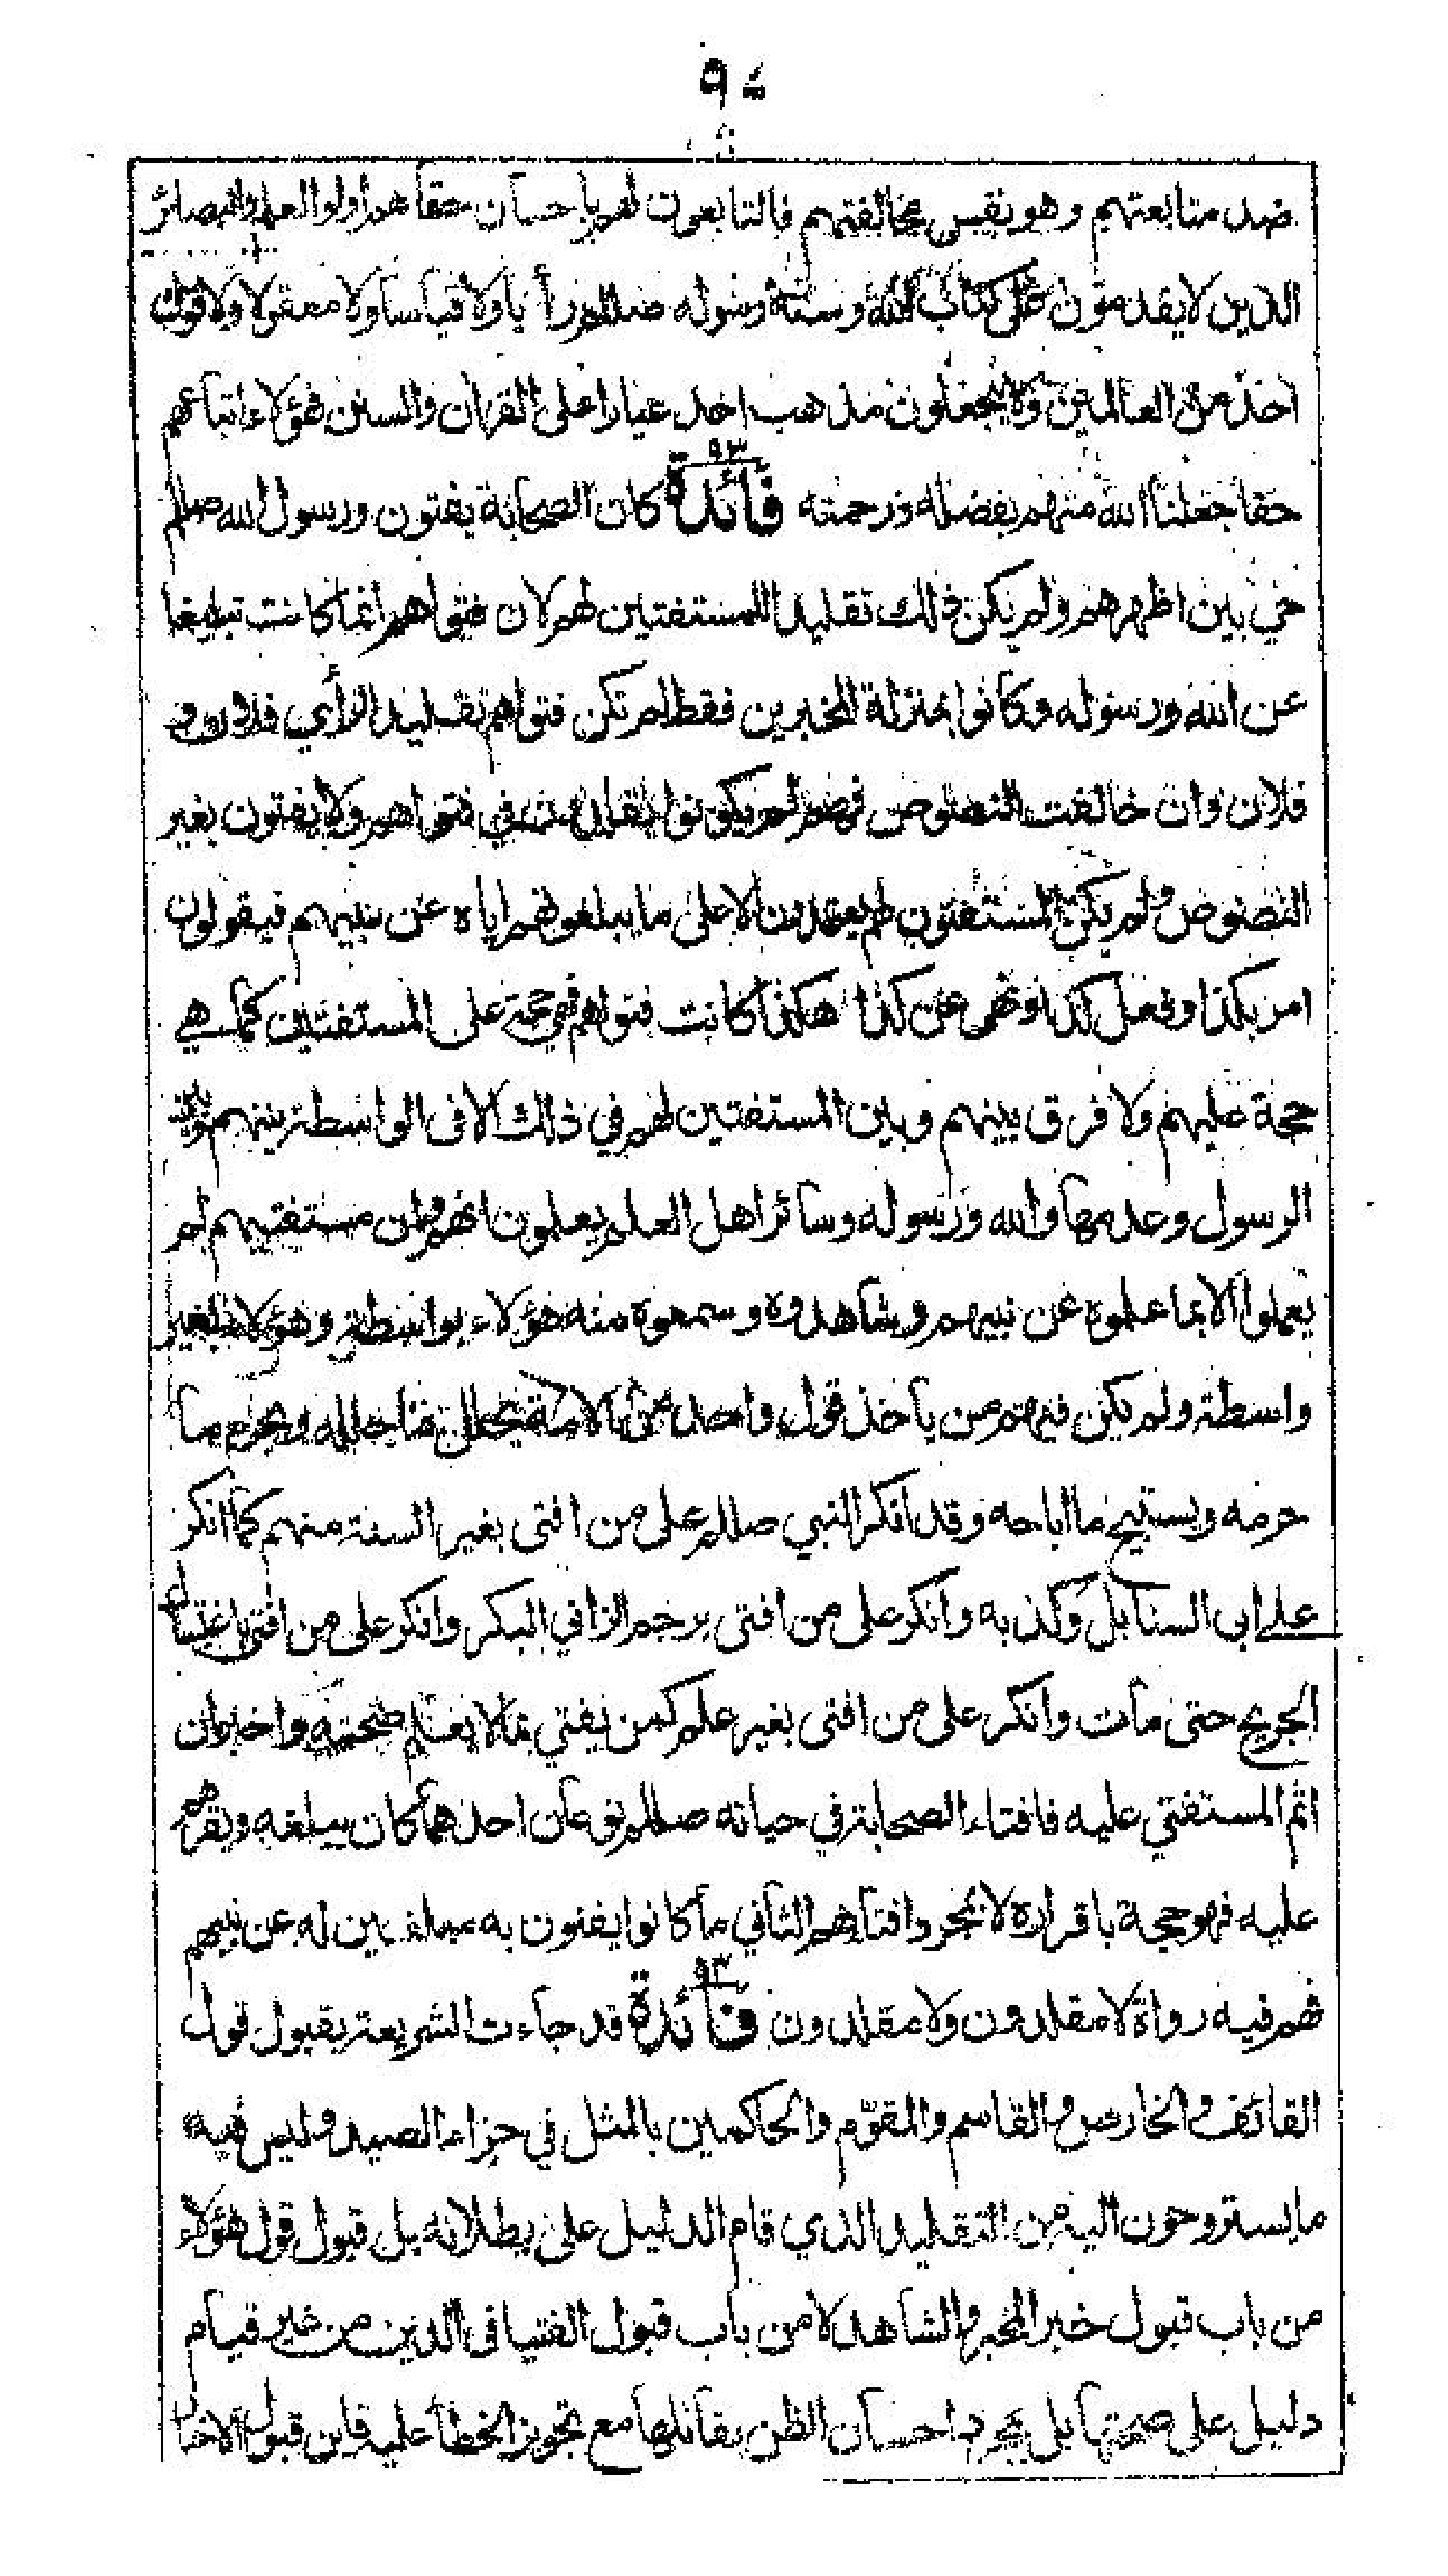 ٩٠
ضد متابعتهم وهو نفس مخالفتهم فالتابعون لهم باحسان حقا هم اولوا العلم والبصائر
الذين لا يقدمون على كتاب الله وسنة رسوله صللم رأيا ولا قياسا ولا معقولا ولا قول
احد من العالمين ولا يجعلون مذهب احد عيارا على القران والسنن فهؤلاء اتباعهم
حقا جعلنا الله منهم بفضله ورحمته فائدة ٩٢ كان الصحابة يفتون ورسول الله صللم
حي بين اظهرهم ولم يكن ذلك تقليدا للمستفتين لهم لان فتواهم انما كانت تبليغا
عن الله ورسوله وكانوا بمنزلة المخبرين فقط لم تكن فتواهم تقليدا لرأي فلان و
فلان وان خالفت النصوص فهم لم يكونوا يقلدون في فتواهم ولا يفتون بغير
النصوص ولم يكن المستفتون لهم يعتمدون الا على ما يبلغونهم اياه عن نبيهم فيقولون
امر بكذا وفعل كذا ونهى عن كذا هكذا كانت فتواهم فهي حجة على المستفتين كما هي
حجة عليهم ولا فرق بينهم وبين المستفتين لهم في ذلك الا فى الواسطة بينهم وبين
الرسول وعدمها والله ورسوله وسائر اهل العلم يعلمون انهم وان مستفتيهم لم
يعملوا الا بما علموه عن نبيهم وشاهدوه وسمعوه منه هؤلاء بواسطة وهؤلاء بغير
واسطة ولم يكن فيهم من يأخذ قول واحد من الامة يحلل ما حلله ويحرم ما
حرمه ويستبيح ما اباحه وقد انكر النبي صللم على من افتى بغير السنة منهم كما انكر
على ابى السنابل وكذبه وانكر على من افتى برجم الزاني البكر وانكر على من افتى باغتسال
الجريح حتى مات وانكر على من افتى بغير علم كمن يفتي بما لا يعلم صحته واخبر ان
اثم المستفتي عليه فافتاء الصحابة في حياته صللم نوعان احدهما كان يبلغه ويقرهم
عليه فهو حجة باقراره لا بمجرد افتائهم الثاني ما كانوا يفتون به مبلغين له عن نبيهم
فهم فيه رواة لا مقلدون ولا مقلدون فائدة ٩٣ قد جاءت الشريعة بقبول قول
القائف والخارص والقاسم والمقوّم والحاكمين بالمثل في جزاء الصيد وليس فيه
ما يستروحون اليه من التقليد الذي قام الدليل على بطلانه بل قبول قول هؤلاء
من باب قبول خبر المخبر والشاهد لا من باب قبول الفتيا فى الدين من غير قيام
دليل على صحتها بل بمجرد احسان الظن بقائلها مع تجويز الخطأ عليه فاين قبول الاخبار